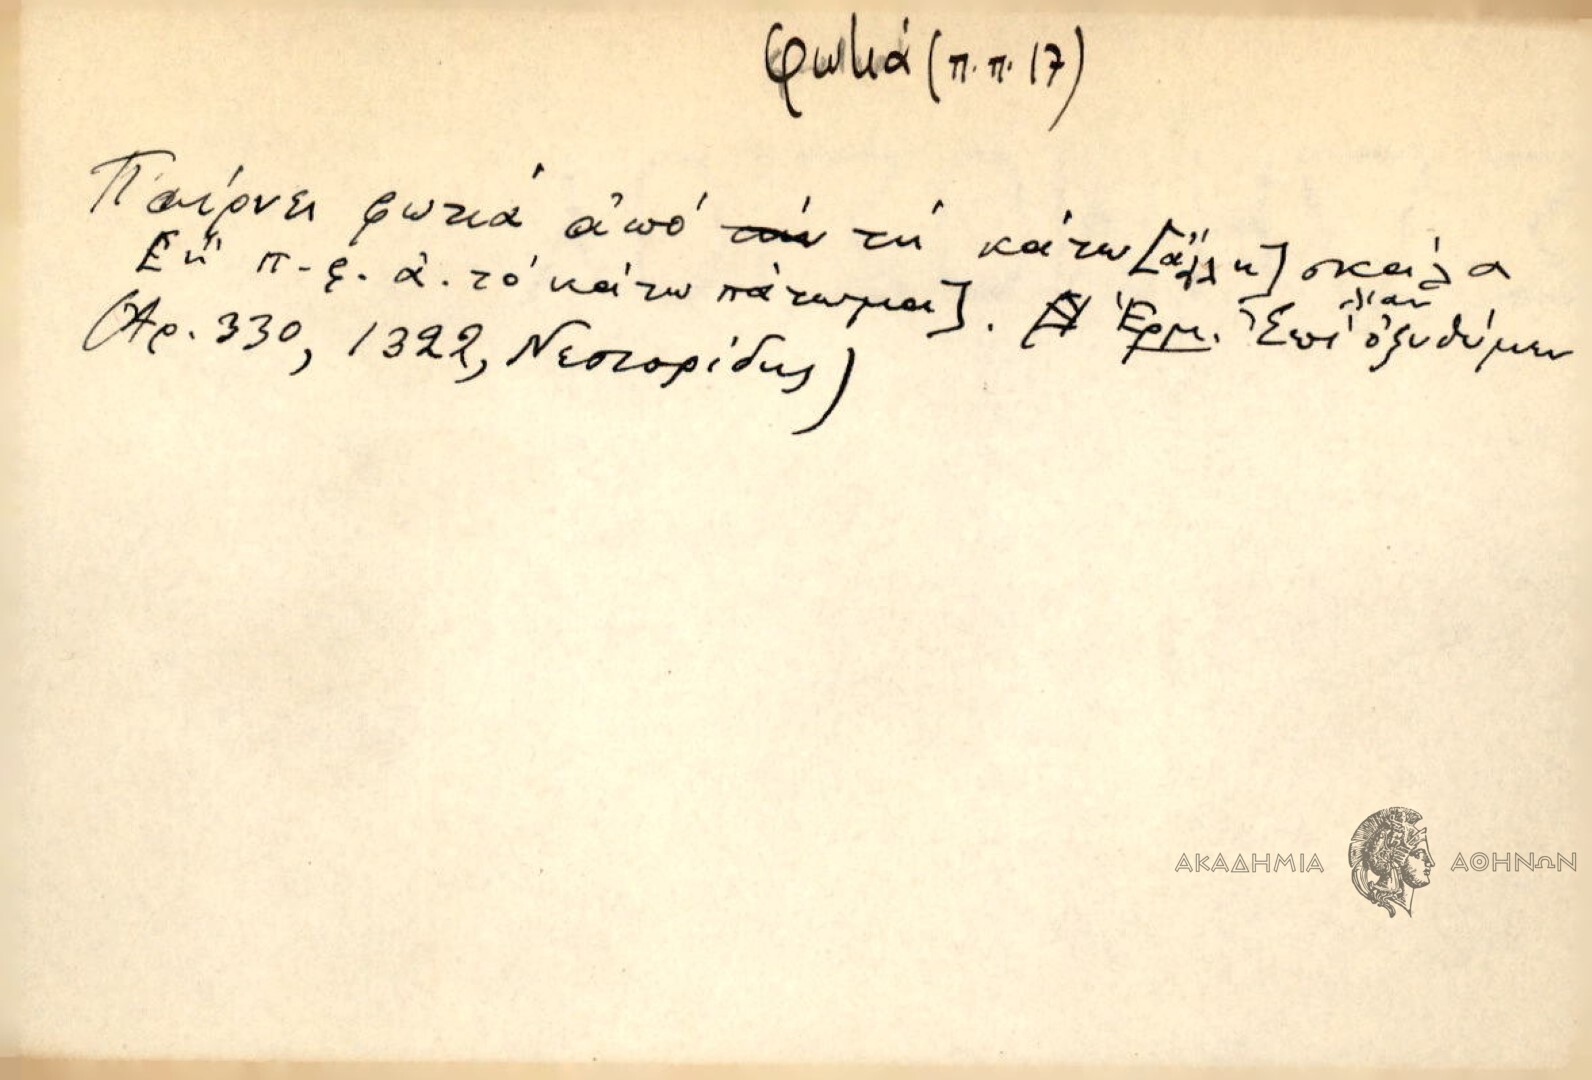 φωτιά (π.π. 17)
Παίρνει φωτιά ἀπό τή κάτω [ἄλλη] σκάλα
[ἤ π. φ. ἀ. τό κάτω πάτωμα]. Ἑρμ. Ἐπί λίαν ὀξυθύμων
(Ἀρ. 330, 1322, Νεστορίδης)
ΑΚΑΔΗΜΙΑ ΑΘΗΝΩΝ